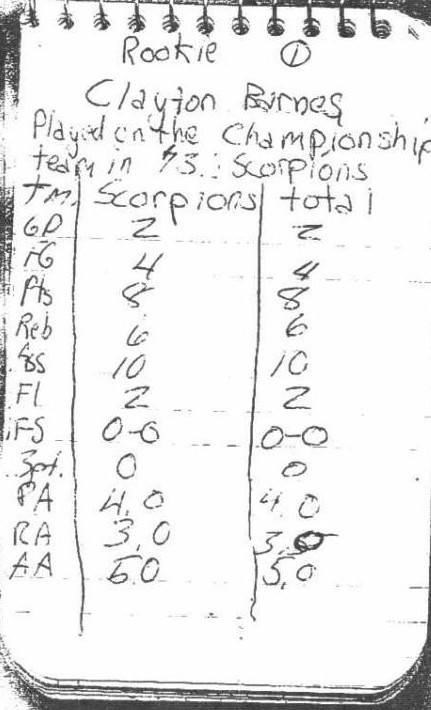 Rookie ①
Clayton Barnes
Played on the Championship
team in '93. Scorpions
Tm. Scorpions total
GP 2 2
FG 4 4
Pts 8 8
Reb 6 6
Ass 10 10
Fl 2 2
FS 0-0 0-0
3pt. 0 0
PA 4.0 4.0
RA 3.0 3.0
AA 5.0 5.0